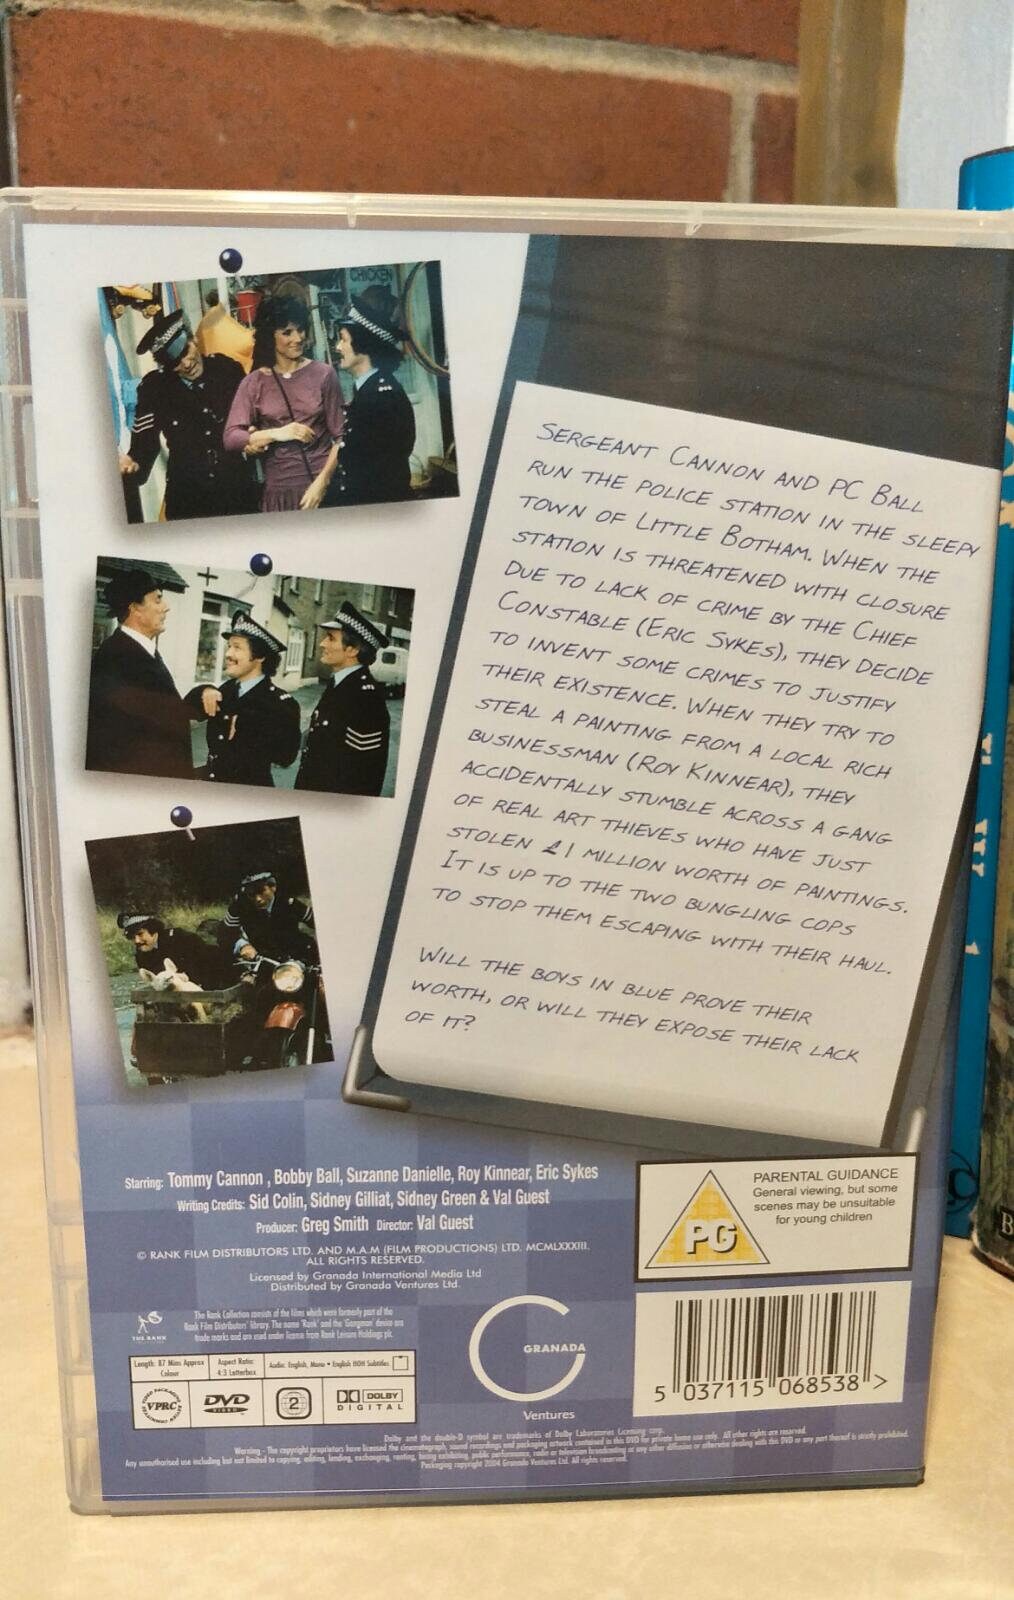 CHICKEN
SERGEANT CANNON AND PC BALL
RUN THE POLICE STATION IN THE SLEEPY
TOWN OF LITTLE BOTHAM. WHEN THE
STATION IS THREATENED WITH CLOSURE
DUE TO LACK OF CRIME BY THE CHIEF
CONSTABLE (ERIC SYKES), THEY DECIDE
TO INVENT SOME CRIMES TO JUSTIFY
THEIR EXISTENCE. WHEN THEY TRY TO
STEAL A PAINTING FROM A LOCAL RICH
BUSINESSMAN (ROY KINNEAR), THEY
ACCIDENTALLY STUMBLE ACROSS A GANG
OF REAL ART THIEVES WHO HAVE JUST
STOLEN £1 MILLION WORTH OF PAINTINGS.
IT IS UP TO THE TWO BUNGLING COPS
TO STOP THEM ESCAPING WITH THEIR HAUL.
WILL THE BOYS IN BLUE PROVE THEIR
WORTH, OR WILL THEY EXPOSE THEIR LACK
OF IT?
Starring: Tommy Cannon , Bobby Ball, Suzanne Danielle, Roy Kinnear, Eric Sykes
Writing Credits: Sid Colin, Sidney Gilliat, Sidney Green & Val Guest
Producer: Greg Smith Director: Val Guest
© RANK FILM DISTRIBUTORS LTD. AND M.A.M (FILM PRODUCTIONS) LTD. MCMLXXXIII.
ALL RIGHTS RESERVED.
Licensed by Granada International Media Ltd
Distributed by Granada Ventures Ltd.
THE RANK
The Rank Collection consists of the films which were formerly part of the
Rank Film Distributors' library. The name 'Rank' and the 'Gongman' device are
trade marks and are used under license from Rank Leisure Holdings plc.
Length: 87 Mins Approx
Colour
Aspect Ratio:
4:3 Letterbox
Audio: English, Mono • English HOH Subtitles
VPRC
DVD
VIDEO
2
DOLBY
DIGITAL
GRANADA
Ventures
PG
PARENTAL GUIDANCE
General viewing, but some
scenes may be unsuitable
for young children
5 037115 068538 >
Dolby and the double-D symbol are trademarks of Dolby Laboratories Licensing corp.
Warning - The copyright proprietors have licensed the cinematograph, sound recordings and packaging artwork contained in this DVD for private home use only. All other rights are reserved.
Any unauthorised use including but not limited to copying, editing, lending, exchanging, renting, hiring exhibiting, public performance, radio or television broadcasting or any other diffusion or otherwise dealing with this DVD or any part thereof is strictly prohibited.
Packaging copyright 2004 Granada Ventures Ltd. All rights reserved.